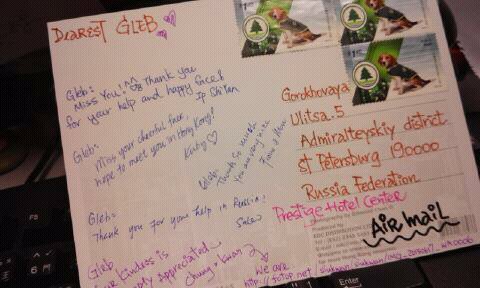 DEAREST GLEB
Gleb:
Miss You! ^^ Thank you
for your help and happy face!
Ip Shitan
Gleb:
Miss your cheerful face,
hope to meet you in Hong Kong!
Kathy
Gleb:
Thank So much
You are very nice
Gleb:
Thank you for your help in Russia!
Gleb
kindness is
appreciated
We are
http://fotop.net
Gorokhovaya
Ulitsa. 5
Admiralteyskiy district
St Petersburg 190000
Russia Federation
Prestige Hotel Center
Air Mail
Enter